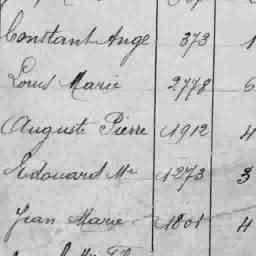 Constant Ange 373 1
Louis Marie 2778 6
Auguste Pierre 1912 4
Edouard Me 1273 3
Jean Marie 1801 4